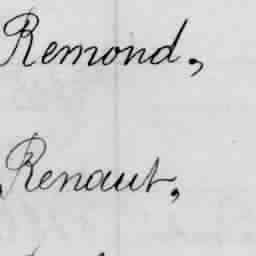 Remond,
Renaut,